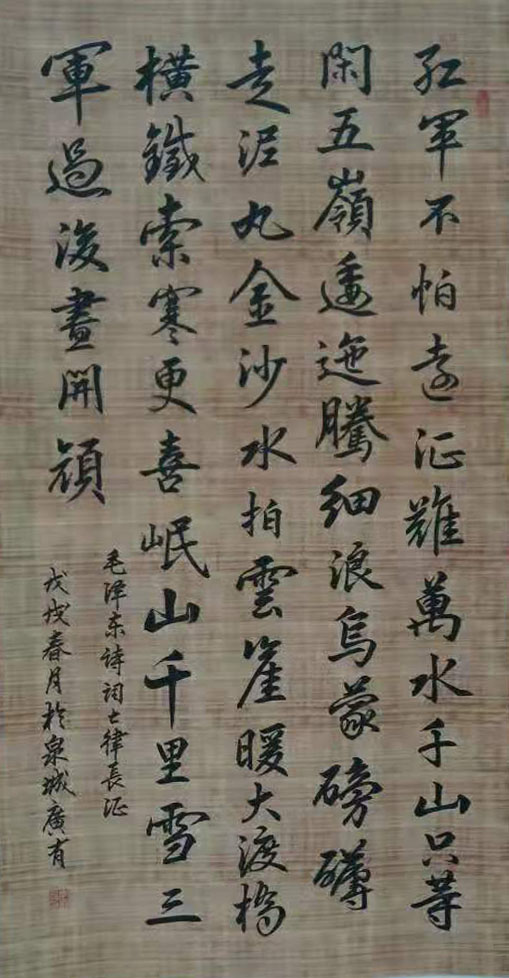 红军不怕遠征難萬水千山只等
閑五嶺逶迤騰細浪烏蒙磅礴
走泥丸金沙水拍雲崖暖大渡橋
横鐵索寒更喜岷山千里雪三
軍過後晝開顔
毛泽东诗词七律長征
戊戌春月於泉城廣有